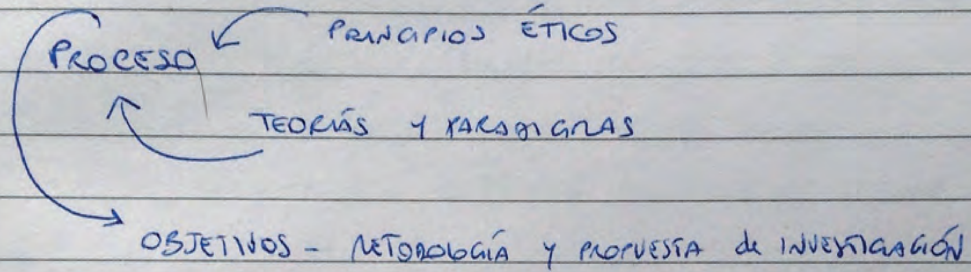 PRINCIPIOS ÉTICOS
PROCESO
TEORÍAS Y PARADIGMAS
OBJETIVOS - METODOLOGÍA Y PROPUESTA de INVESTIGACIÓN